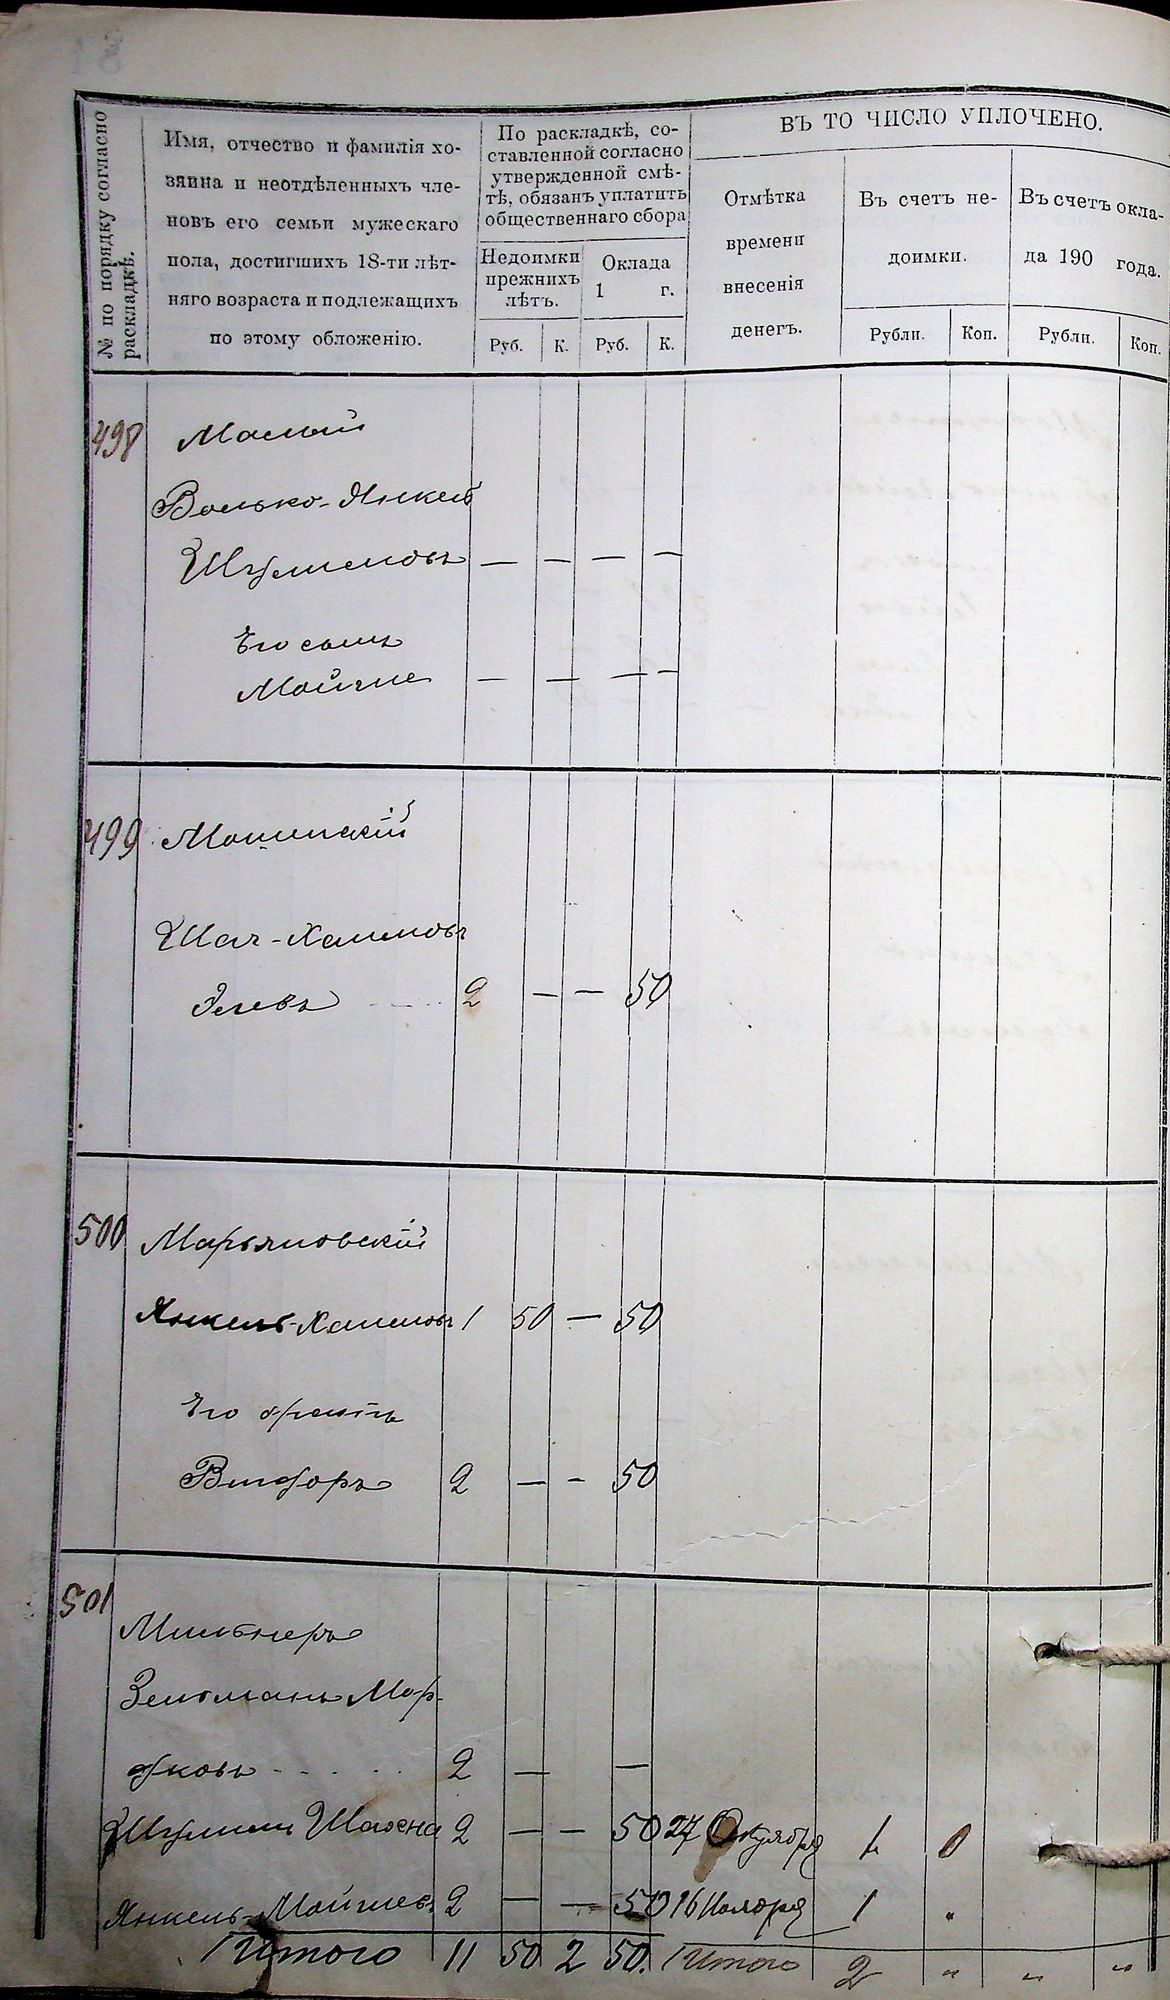 № по порядку согласно
раскладкѣ.
Имя, отчество и фамилія хо-
зяина и неотдѣленныхъ чле-
новъ его семьи мужескаго
пола, достигшихъ 18-ти лѣт-
няго возраста и подлежащихъ
по этому обложенію.
По раскладкѣ, со-
ставленной согласно
утвержденной смѣ-
тѣ, обязанъ уплатить
общественнаго сбора
Недоимки
прежнихъ
лѣтъ.
Оклада
1 г.
Руб. К. Руб. К.
ВЪ ТО ЧИСЛО УПЛОЧЕНО.
Отмѣтка
времени
внесенія
денегъ.
Въ счет не-
доимки.
Въ счетъ окла-
да 190 года.
Рубли. Коп. Рубли. Коп.
498 Малый
Волько-Янкель
Шулимовъ — — — —
Его сынъ
Мойше — — — —
499
Шая-Хаимовъ
2 — — 50
500 Марьяновскій
Янкель-Хаимовъ 1 50 — 50
Его братъ
Вигдоръ 2 — - 50
501
Мильнеръ
Зельманъ Мор-
дковъ 2 — —
Шулимъ 2 — — 50 27 Октября 1 0
Янкель-Мойшевъ 2 — — 50 16 Ноября 1 "
Итого 11 50 2 50. Итого 2 " " "